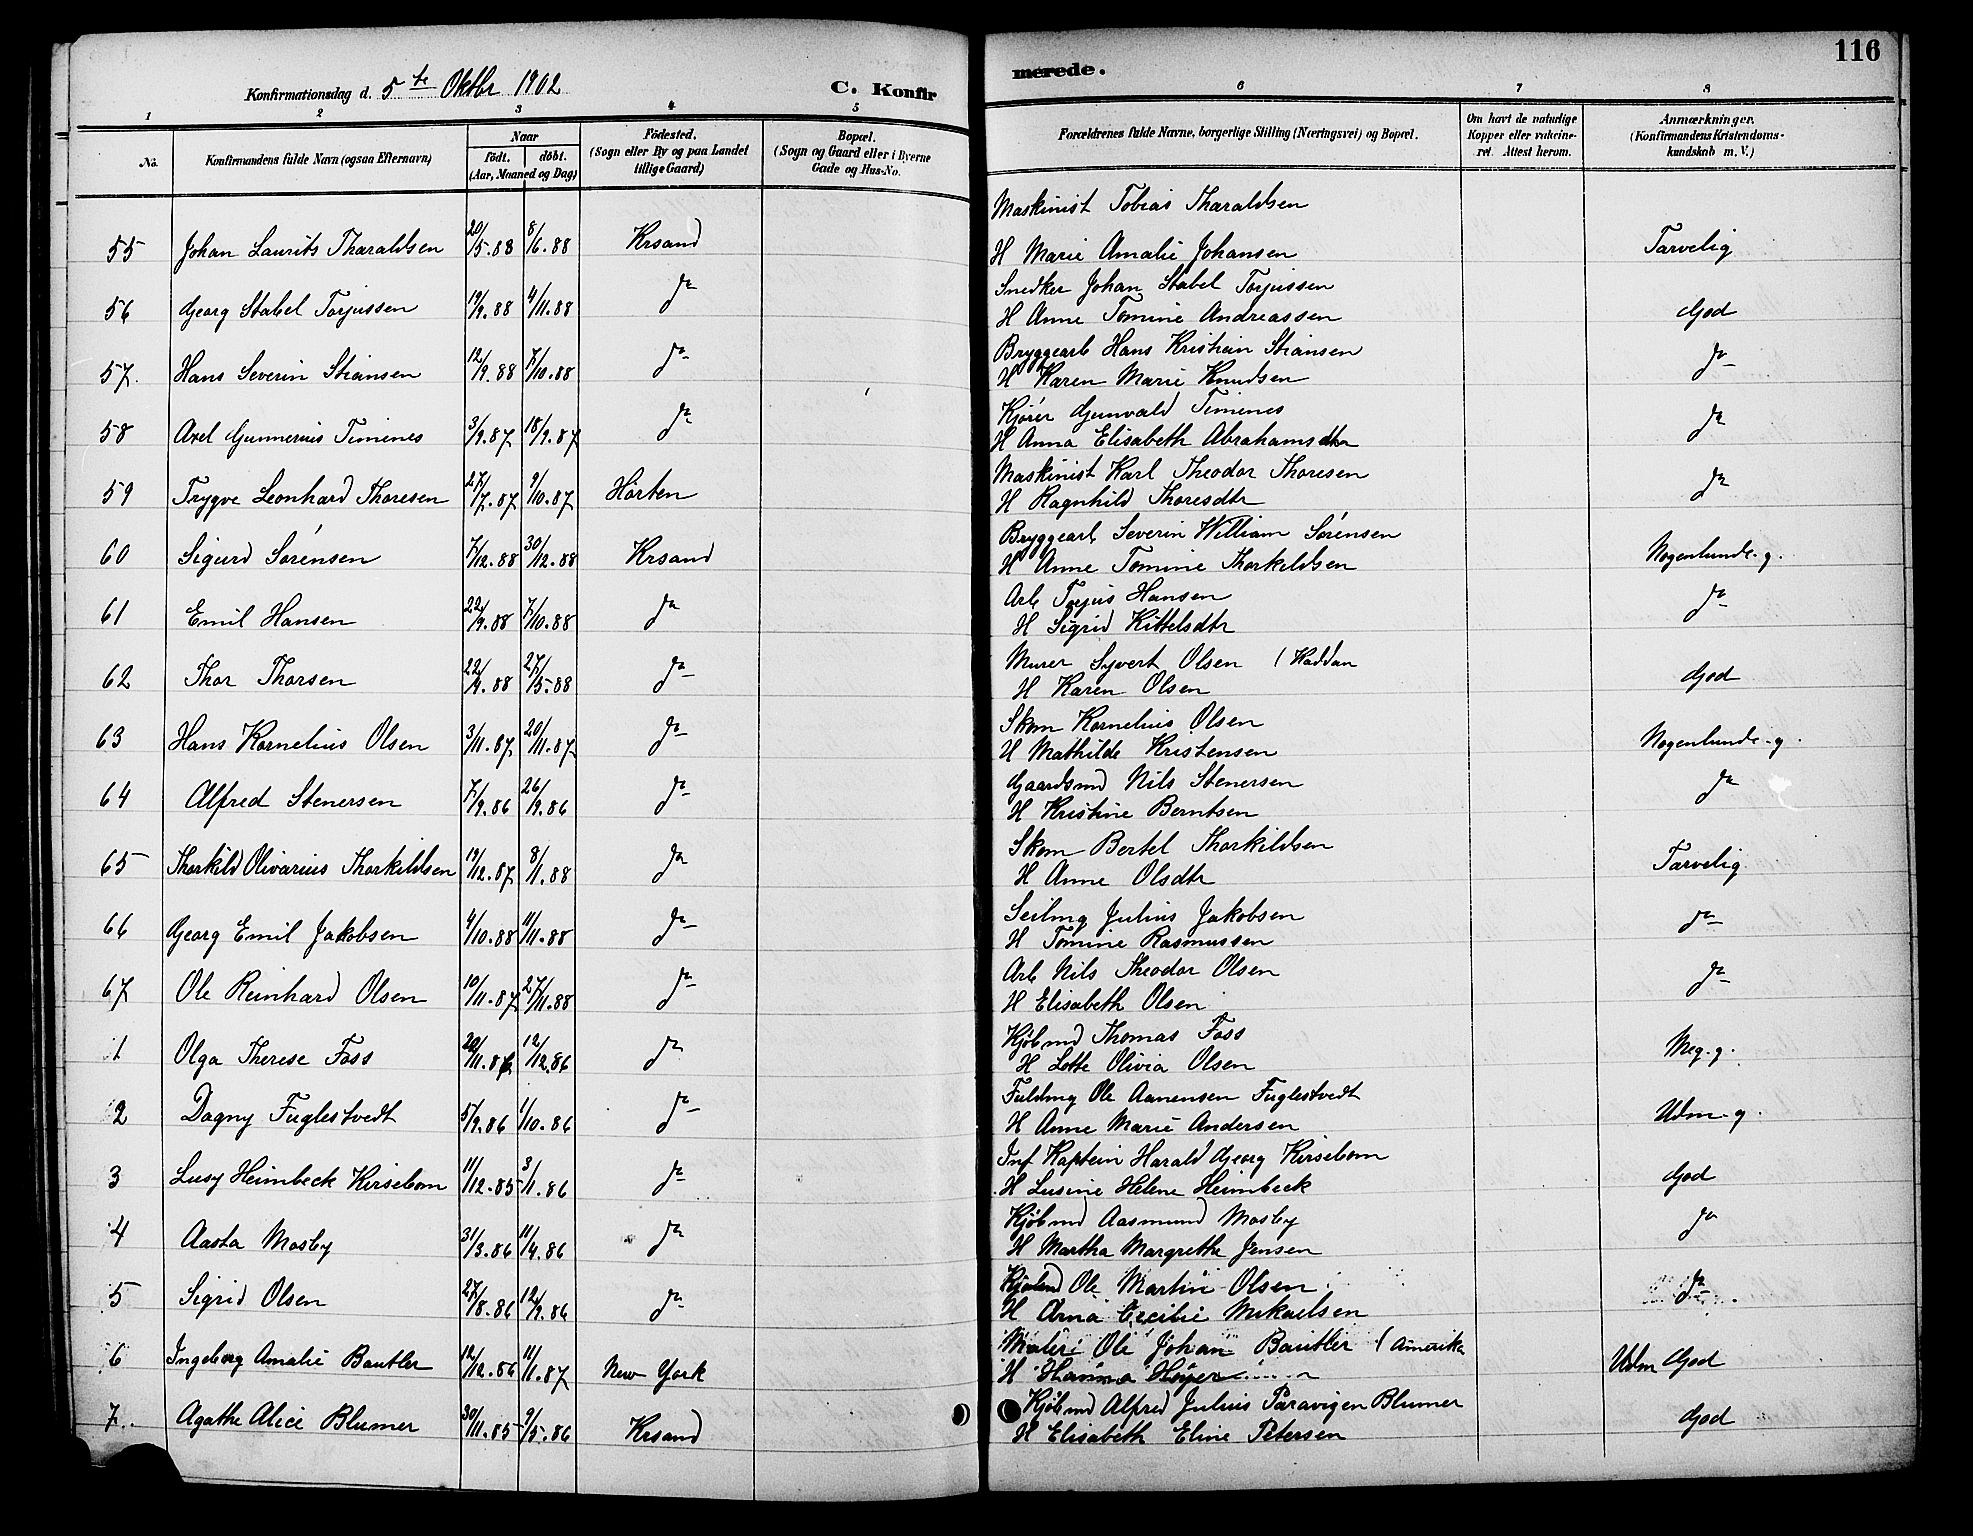 116
Konfirmationsdag d. 5te Oktbr 1902
C. Konfir
merede.
1 2 3 4 5 6 7 8
No.
Konfirmandens fulde Navn (ogsaa Efternavn)
Naar
födt. döbt.
(Aar, Maaned og Dag)
Födested.
(Sogn eller By og paa Landet
tillige Gaard)
Bopæl.
(Sogn og Gaard eller i Byerne
Gade og Hus-No.
Forældrenes fulde Navne, borgerlige Stilling (Næringsvei) og Bopæl.
Om havt de naturlige
Kopper eller vakcine-
ret. Attest herom.
Anmærkninger.
(Konfirmandens Kristendoms-
kundskab m. V.)
Maskinist Tobias Tharaldsen
55 Johan Laurits Tharaldsen 20/5.88 8/6.88 Krsand H Marie Amalie Johansen Tarvelig
Snedker Johan Stabel Torjussen
56 Georg Stabel Torjussen 19/9.88 4/11.88 do H Anne Tomine Andreassen God
Bryggearb Hans Kristian Stiansen
57. Hans Severin Stiansen 12/9.88 7/10.88 do H Karen Marie Knudsen do
Kjörer Gunvald Timenes
58 Axel Gunnerius Timenes 3/9.87 18/9.87 do H Anna Elisabeth Abrahamsdtr do
Maskinist Karl Theodor Thoresen
59 Trygve Leonhard Thoresen 27/7.87 9/10.87 Horten H Ragnhild Thoresdtr do
Bryggearb Severin William Sörensen
60 Sigurd Sörensen 7/12.88 30/12.88 Krsand H Anne Tomine Thorkildsen Nogenlunde.g.
Arb Torjus Hansen
61 Emil Hansen 22/9.88 7/10.88 do H Sigrid Kittelsdtr do
Murer Syvert Olsen (Haddan
62 Thor Thorsen 22/4.88 27/5.88 do H Karen Olsen God
Skom Kornelius Olsen
63 Hans Kornelius Olsen 3/11.87 20/11.87 do H Mathilde Kristensen Nogenlunde.g.
Gaardsmd Nils Stenersen
64 Alfred Stenersen 7/9.86 26/9.86 do H Kristine Berntsen do
Skom Bertel Thorkildsen
65 Thorkild Olivarius Thorkildsen 19/12.87 8/1.88 do H Anne Olsdtr Tarvelig
Seilmg Julius Jakobsen
66 Georg Emil Jakobsen 4/10.88 11/11.88 do H Tomine Rasmussen do
Arb Nils Theodor Olsen
67 Ole Reinhard Olsen 10/11.87 27/11.88 do H Elisabeth Olsen do
Kjöbmd Thomas Foss
1 Olga Therese Foss 20/11.86 12/12.86 do H Lotte Olivia Olsen Meg.g.
Fuldmg Ole Aanensen Fuglestvedt
2 Dagny Fuglestvedt 5/9.86 1/10.86 do H Anne Marie Andersen Udm.g.
Inf Kaptein Harald Georg Kirsebom
3 Lusy Heimbeck Kirsebom 11/12.85 3/1.86 do H Lusine Helene Heimbeck God
Kjöbmd Aasmund Mosby
4 Aasta Mosby 31/3.86 11/4.86 do H Martha Margrethe Jensen do
Kjöbmd Ole Martin Olsen
5 Sigrid Olsen 27/8.86 12/9.86 do H Anna Cecilie Mikaelsen do
Maler Ole Johan Bautler (Amerika
6 Ingeborg Amalie Bautler 12/12.86 11/1.87 New York H Hanna Höyer Udm God
Kjöbmd Alfred Julius Paravigen Blumer
7. Agathe Alice Blumer 30/11.85 9/5.86 Krsand H Elisabeth Eline Petersen God